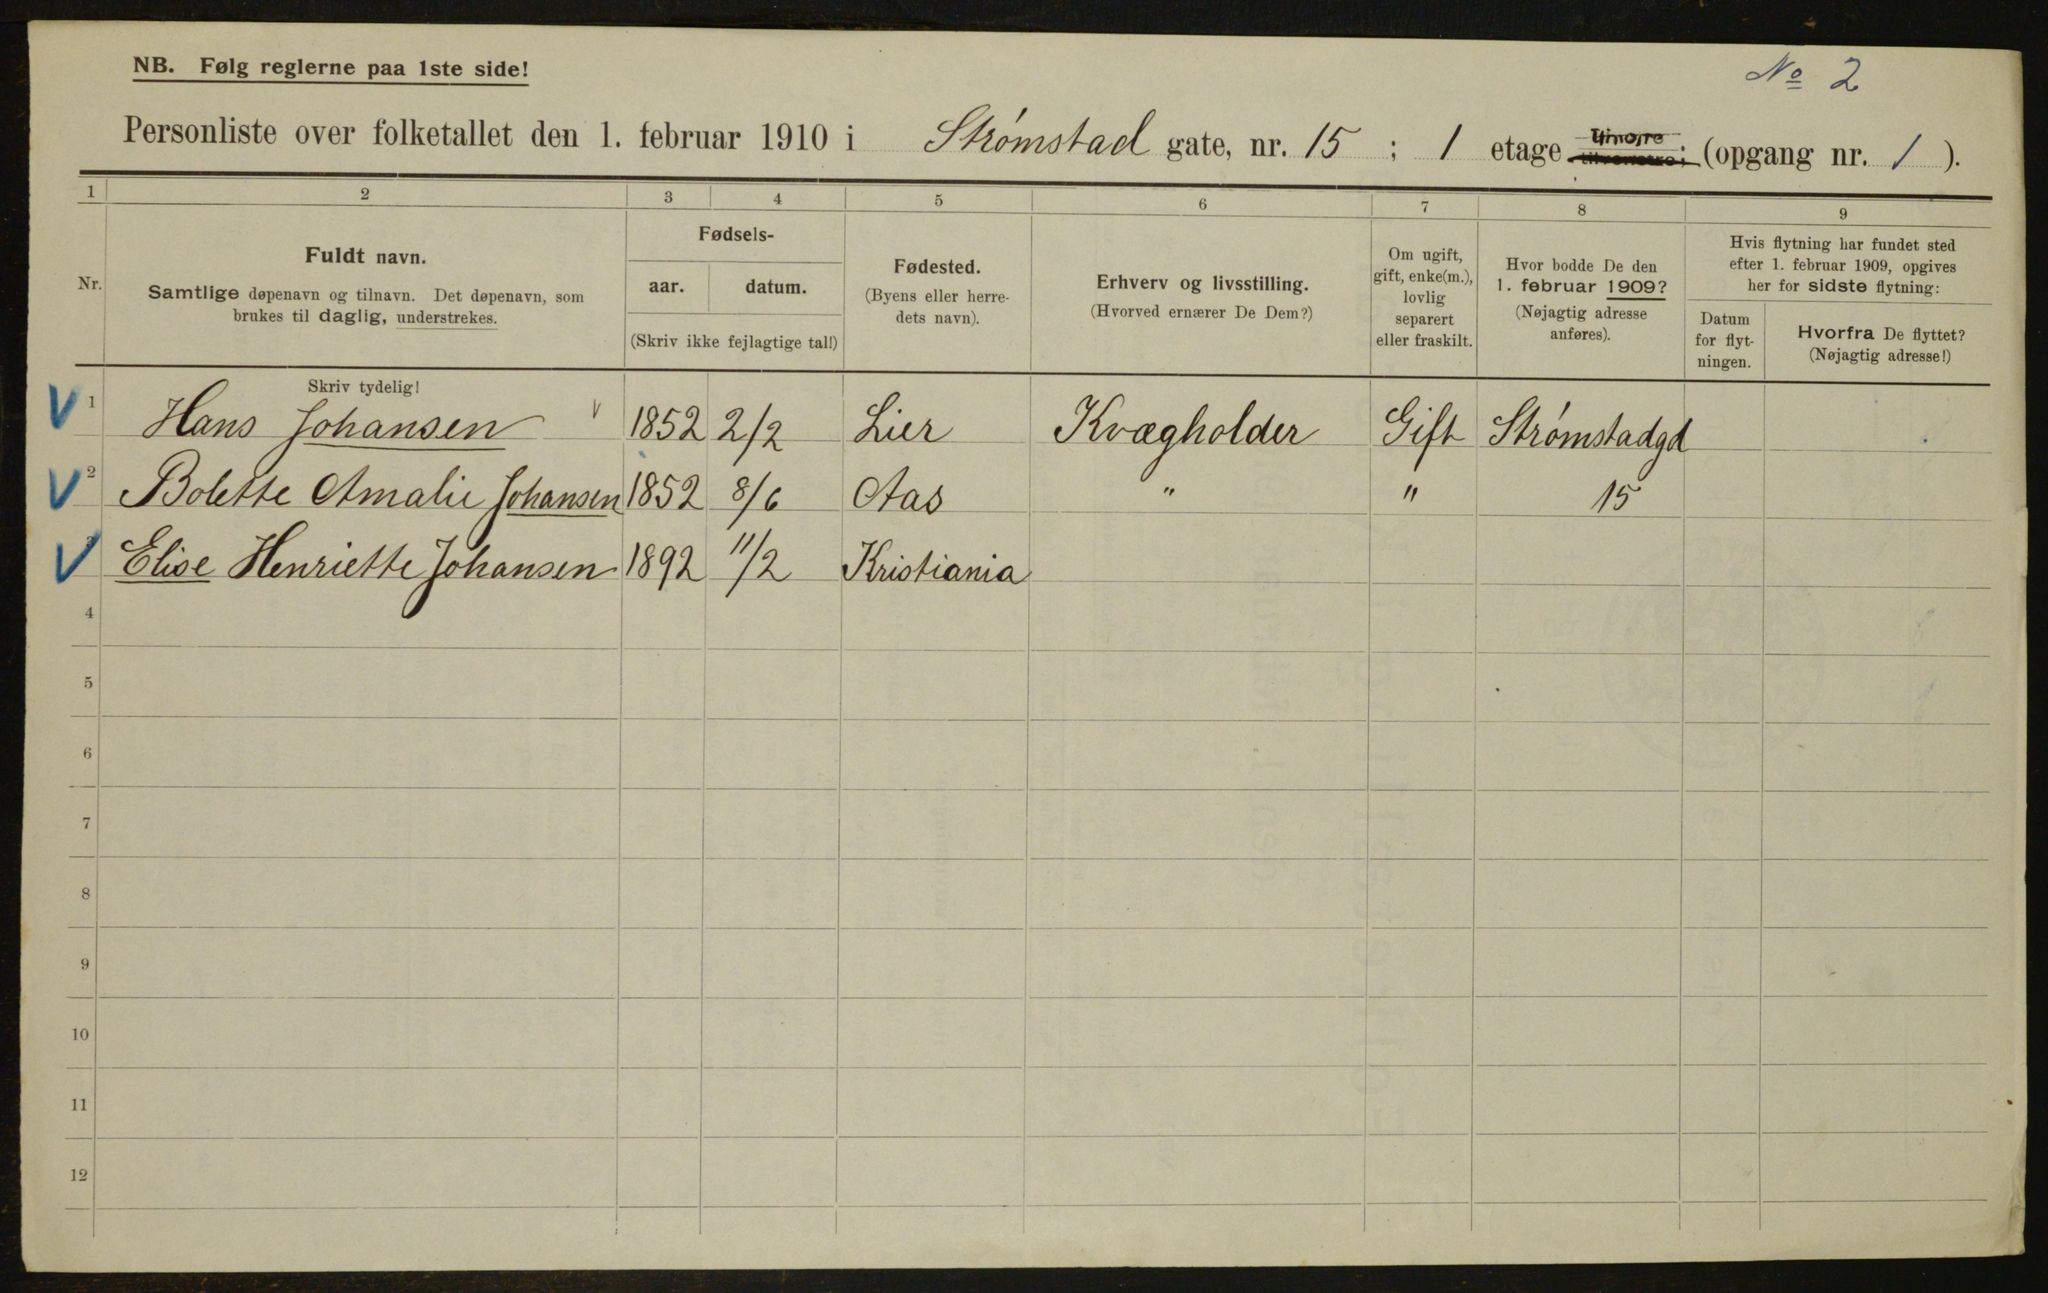 NB. Følg reglerne paa 1ste side!
No 2
Personliste over folketallet den 1. februar 1910 i Strømstad gate, nr. 15 ; 1 etage (opgang nr. 1 ).
1 2 3 4 5 6 7 8 9
Nr.
Fuldt navn.
Samtlige døpenavn og tilnavn. Det døpenavn, som
brukes til daglig, understrekes.
Fødsels-
aar. datum.
(Skriv ikke fejlagtige tal!)
Fødested.
(Byens eller herre-
dets navn).
Erhverv og livsstilling.
(Hvorved ernærer De Dem?)
Om ugift,
gift, enke(m.),
lovlig
separert
eller fraskilt.
Hvor bodde De den
1. februar 1909?
(Nøjagtig adresse
anføres).
Hvis flytning har fundet sted
efter 1. februar 1909, opgives
her for sidste flytning:
Datum
for flyt-
ningen.
Hvorfra De flyttet?
(Nøjagtig adresse!)
Skriv tydelig!
1 Hans Johansen 1852 2/2 Lier Kvægholder Gift Strømstadgd
2 Bolette Amalie Johansen 1852 8/6 Aas " " 15
3 Elise Henriette Johansen 1892 11/2 Kristiania
4
5
6
7
8
9
10
11
12